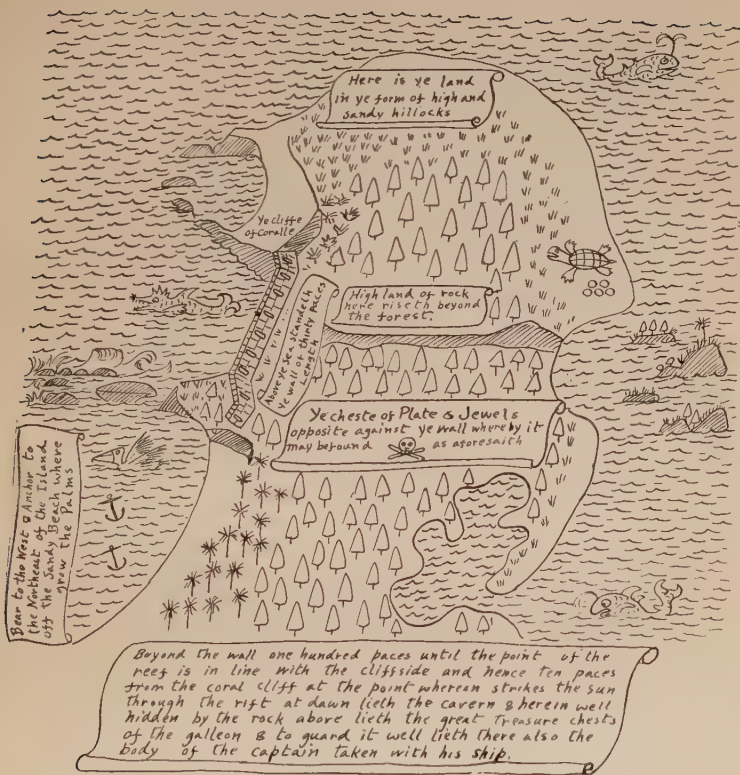 Here is ye land
in ye form of high and
sandy hillocks
Ye cliffe
of Coralle
High land of rock
here riseth beyond
the forest.
Above ye sea standeth
Ye wall of thirty Paces
Length
Ye cheste of Plate & Jewels
opposite against ye wall whereby it
may befound as aforesaith
Bear to the West & Anchor to
the Northeast of the Island
off the Sandy Beach where
grow the Palms
Beyond the wall one hundred paces until the point of the
reef is in line with the cliffside and hence Ten paces
from the coral cliff at the point whereon strikes the sun
through the rift at dawn lieth the cavern & herein well
hidden by the rock above lieth the great Treasure chests
of the galleon & to guard it well lieth there also the
body of the captain taken with his ship.